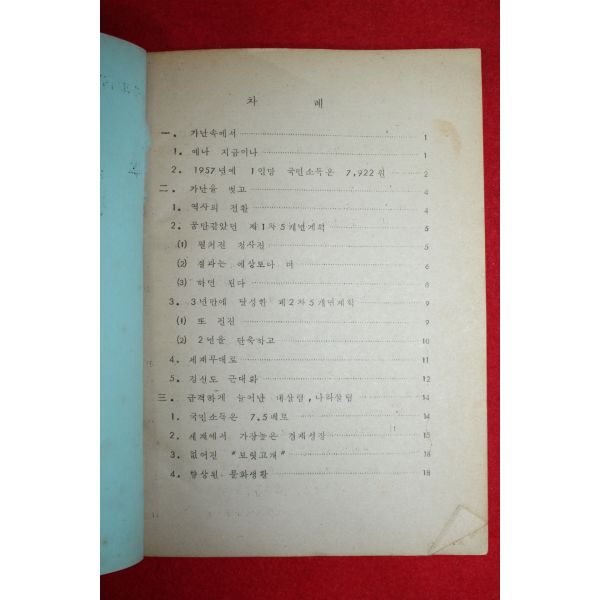 차 례
一. 가난속에서 1
1. 예나 지금이나 1
2. 1957년에 1인당 국민소득은 7,922원 2
二. 가난을 벗고 4
1. 역사의 전환 4
2. 꿈만같았던 제1차5개년계획 5
(1) 펼쳐진 청사진 5
(2) 결과는 예상보다 더 6
(3) 하면 된다 8
3. 3년만에 달성한 제2차5개년계획 9
(1) 또 전진 9
(2) 2년을 단축하고 10
4. 세계무대로 11
5. 정신도 근대화 12
三. 급격하게 늘어난 내살림, 나라살림 14
1. 국민소득은 7.5배로 14
2. 세계에서 가장높은 경제성장 15
3. 없어진 "보릿고개" 16
4. 향상된 문화생활 18